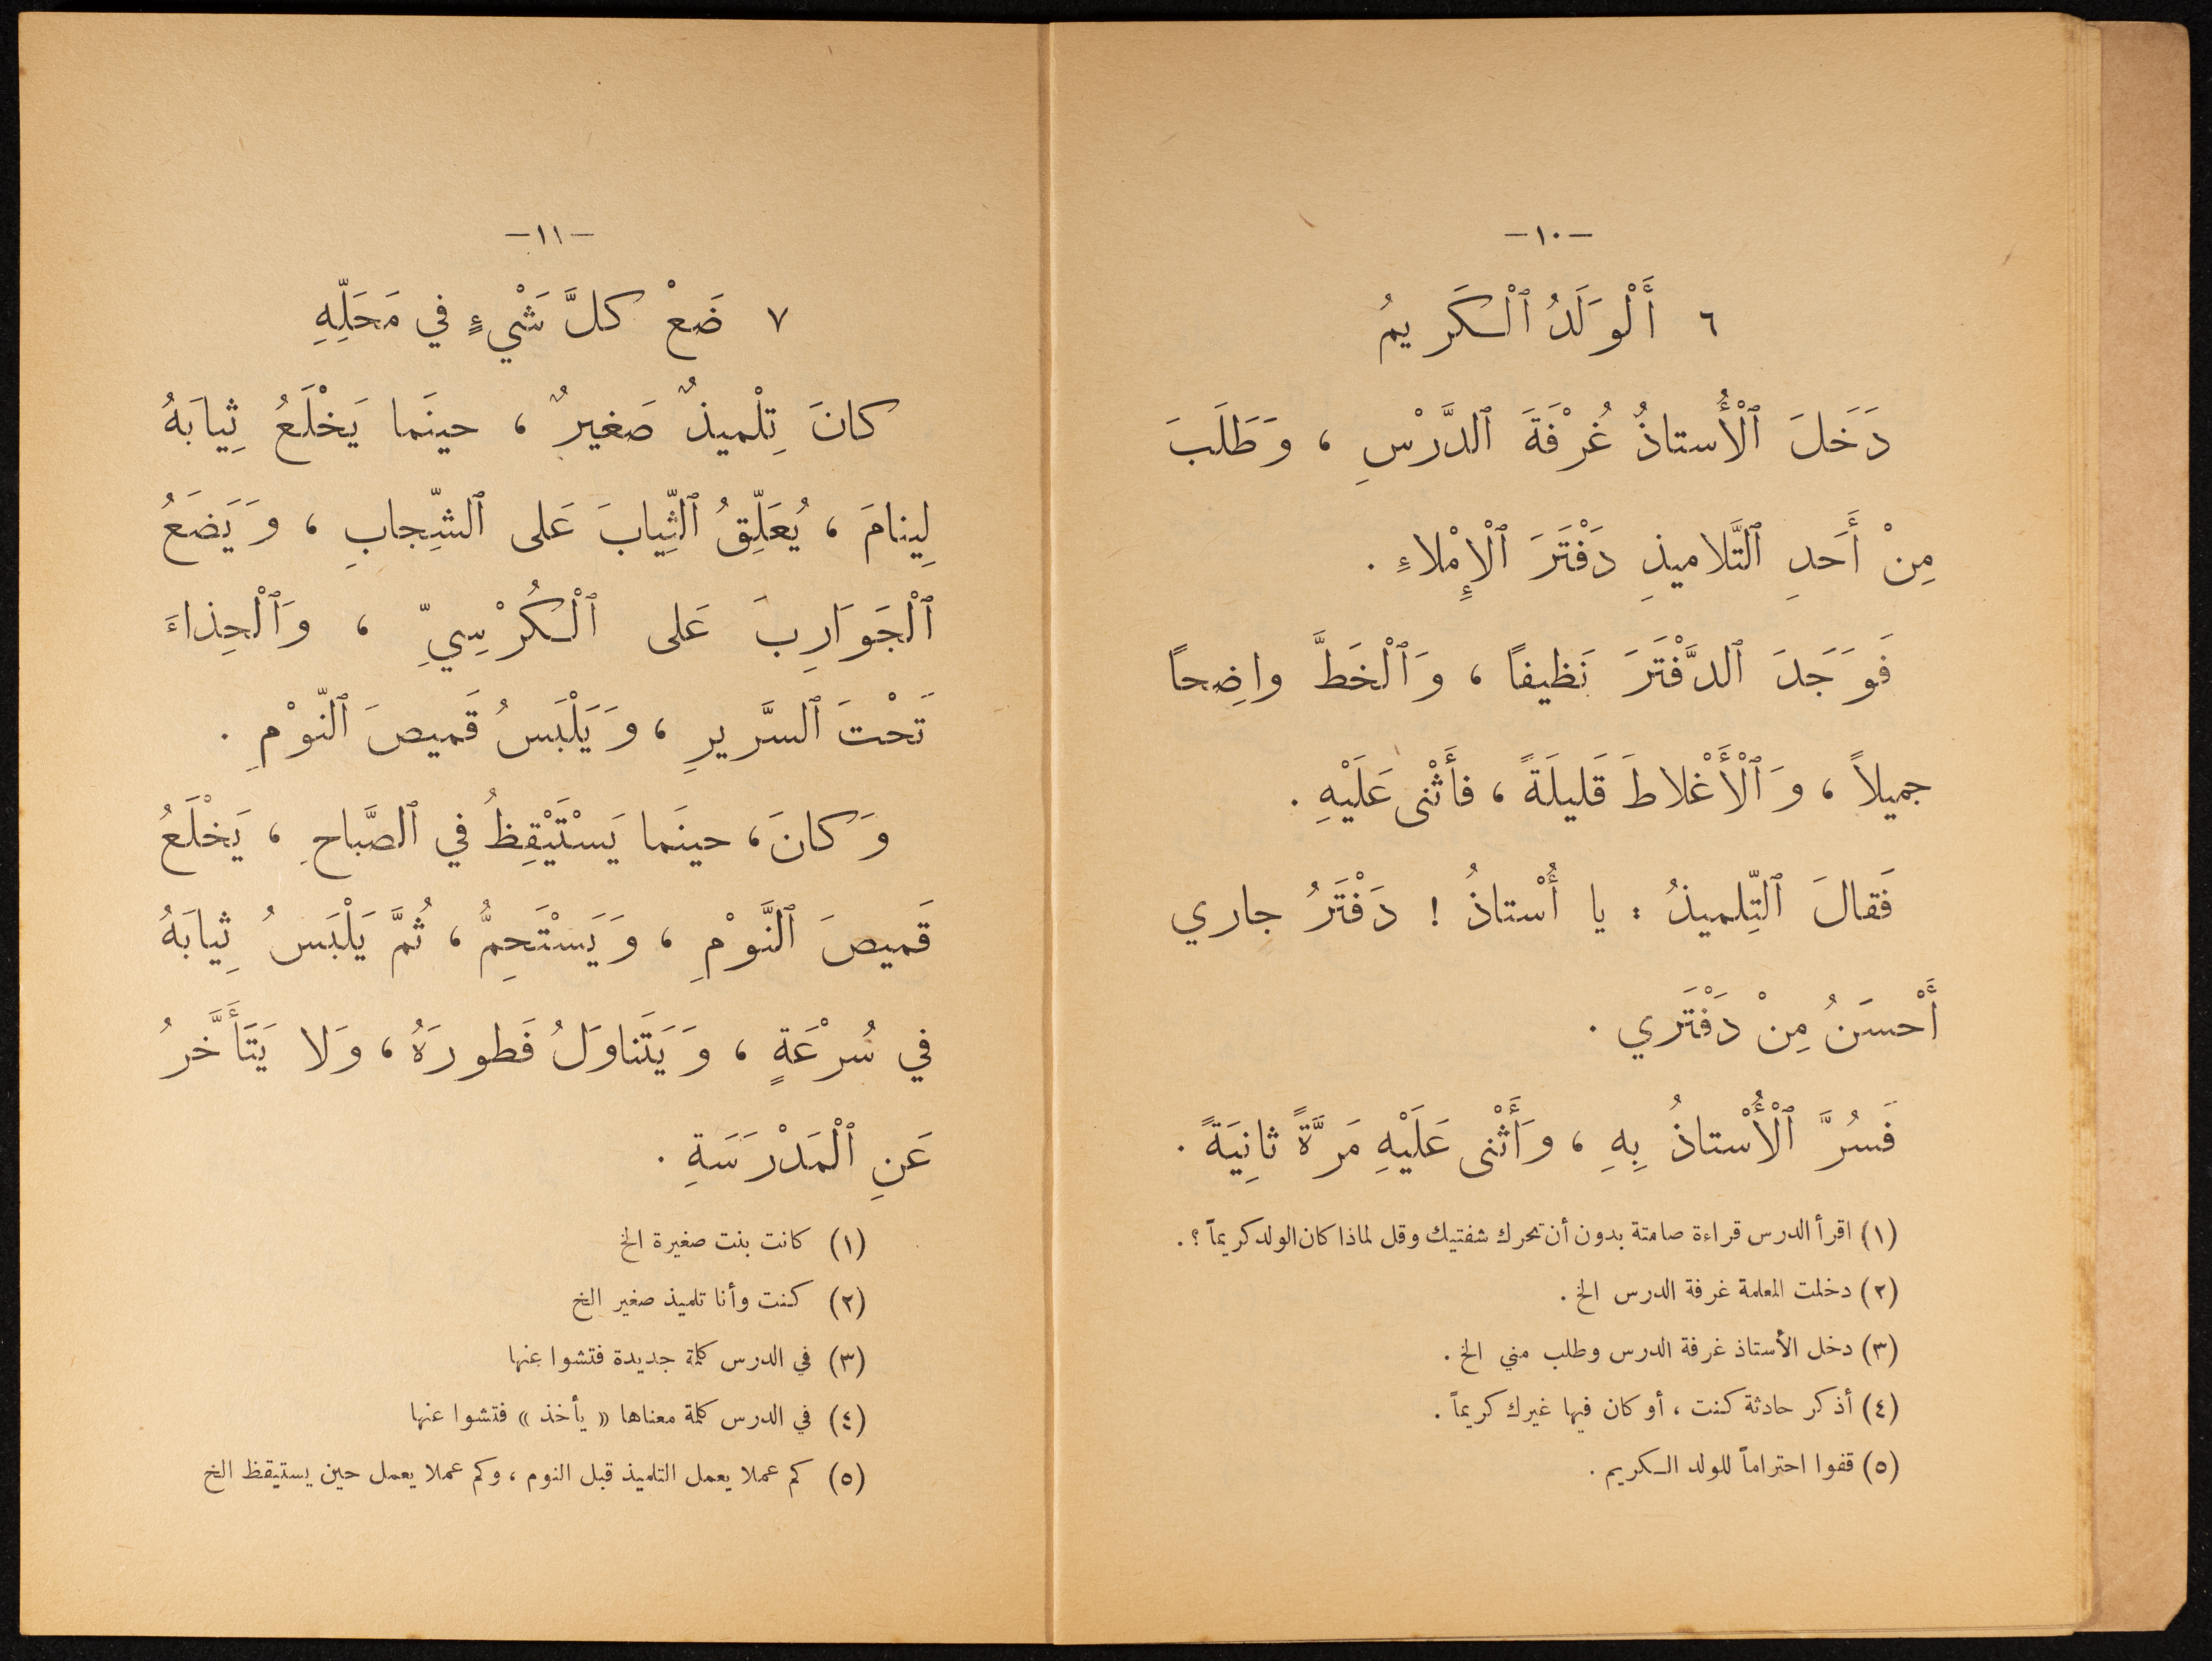 —١٠—
٦ أَلْوَلَدُ ٱلْكَريمُ
دَخَلَ ٱلْأُستاذُ غُرْفَةَ ٱلدَّرْسِ ، وَطَلَبَ
مِنْ أَحَدِ ٱلتَّلاميذِ دَفْتَرَ ٱلْإِمْلاءِ .
فَوَجَدَ ٱلدَّفْتَرَ نَظيفاً ، وَٱلْخَطَّ واضِحاً
جميلاً ، وَٱلْأَغْلاطَ قَليلَةً ، فأَثْنى عَلَيْهِ .
فَقالَ ٱلتِّلميذُ : يا أُسْتاذُ ! دَفْتَرُ جاري
أَحْسَنُ مِنْ دَفْتَري .
فَسُرَّ ٱلْأُسْتاذُ بِهِ ، وَأَثْنى عَلَيْهِ مَرَّةً ثانِيَةً .
(١) اقرأ الدرس قراءة صامتة بدون أن تحرك شفتيك وقل لماذا كان الولد كريماً ؟ .
(٢) دخلت المعلمة غرفة الدرس الخ .
(٣) دخل الأستاذ غرفة الدرس وطلب مني الخ .
(٤) أذكر حادثة كنت ، أو كان فيها غيرك كريماً .
(٥) قفوا احتراماً للولد الكريم .
—١١—
٧ ضَعْ كلَّ شَيْءٍ في مَحَلِّهِ
كانَ تِلْميذٌ صَغيرٌ ، حينَما يَخْلَعُ ثِيابَهُ
لِينامَ ، يُعَلِّقُ ٱلثِّيابَ عَلى ٱلشِّجابِ ، وَيَضَعُ
ٱلْجَوَارِبَ عَلى ٱلْكُرْسِيِّ ، وَٱلْحِذاءَ
تَحْتَ ٱلسَّريرِ ، وَيَلْبَسُ قَميصَ ٱلنّوْمِ .
وَكانَ ، حينَما يَسْتَيْقِظُ في ٱلصَّباحِ ، يَخْلَعُ
قَميصَ ٱلنَّوْمِ ، وَيَسْتَحِمُّ ، ثُمَّ يَلْبَسُ ثِيابَهُ
في سُرْعَةٍ ، وَيَتَناوَلُ فَطورَهُ ، وَلا يَتَأَخَّرُ
عَنِ ٱلْمَدْرَسَةِ .
(١) كانت بنت صغيرة الخ
(٢) كنت وأنا تلميذ صغير الخ
(٣) في الدرس كلمة جديدة فتشوا عنها
(٤) في الدرس كلمة معناها « يأخذ » فتشوا عنها
(٥) كم عملا يعمل التلميذ قبل النوم ، وكم عملا يعمل حين يستيقظ الخ